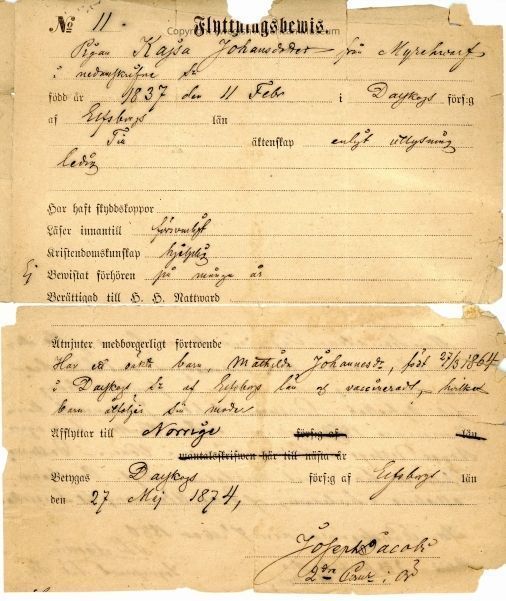 No 11 Flyttningsbewis.
Pigan Kajsa Johansdotter från
i nedanskrifne
född år 1837 den 11 Febr i Dalskogs förs:g
af Elfsborgs län
Till äktenskap enligt utlysning
ledig
Har haft skyddskoppor
Läser innantill försvarligt
Kristendomskunskap hjelplig
Ej Bewistat förhören på många år
Berättigad till H. H. Nattward
Åtnjuter medborgerligt förtroende
Har ett oäkta barn, Mathilda Johannesdr, född 27/3 1864
i Dalskogs Sn af Elfsborgs län och vaccineradt, hvilket
barn åtföljer sin moder
Afflyttar till Norrige förs:g af län
wantalsskrifwen här till nästa år
Betygas Dalskogs förs:g af Elfsborgs län
den 27 Maj 1874,
Joseph Jacobi